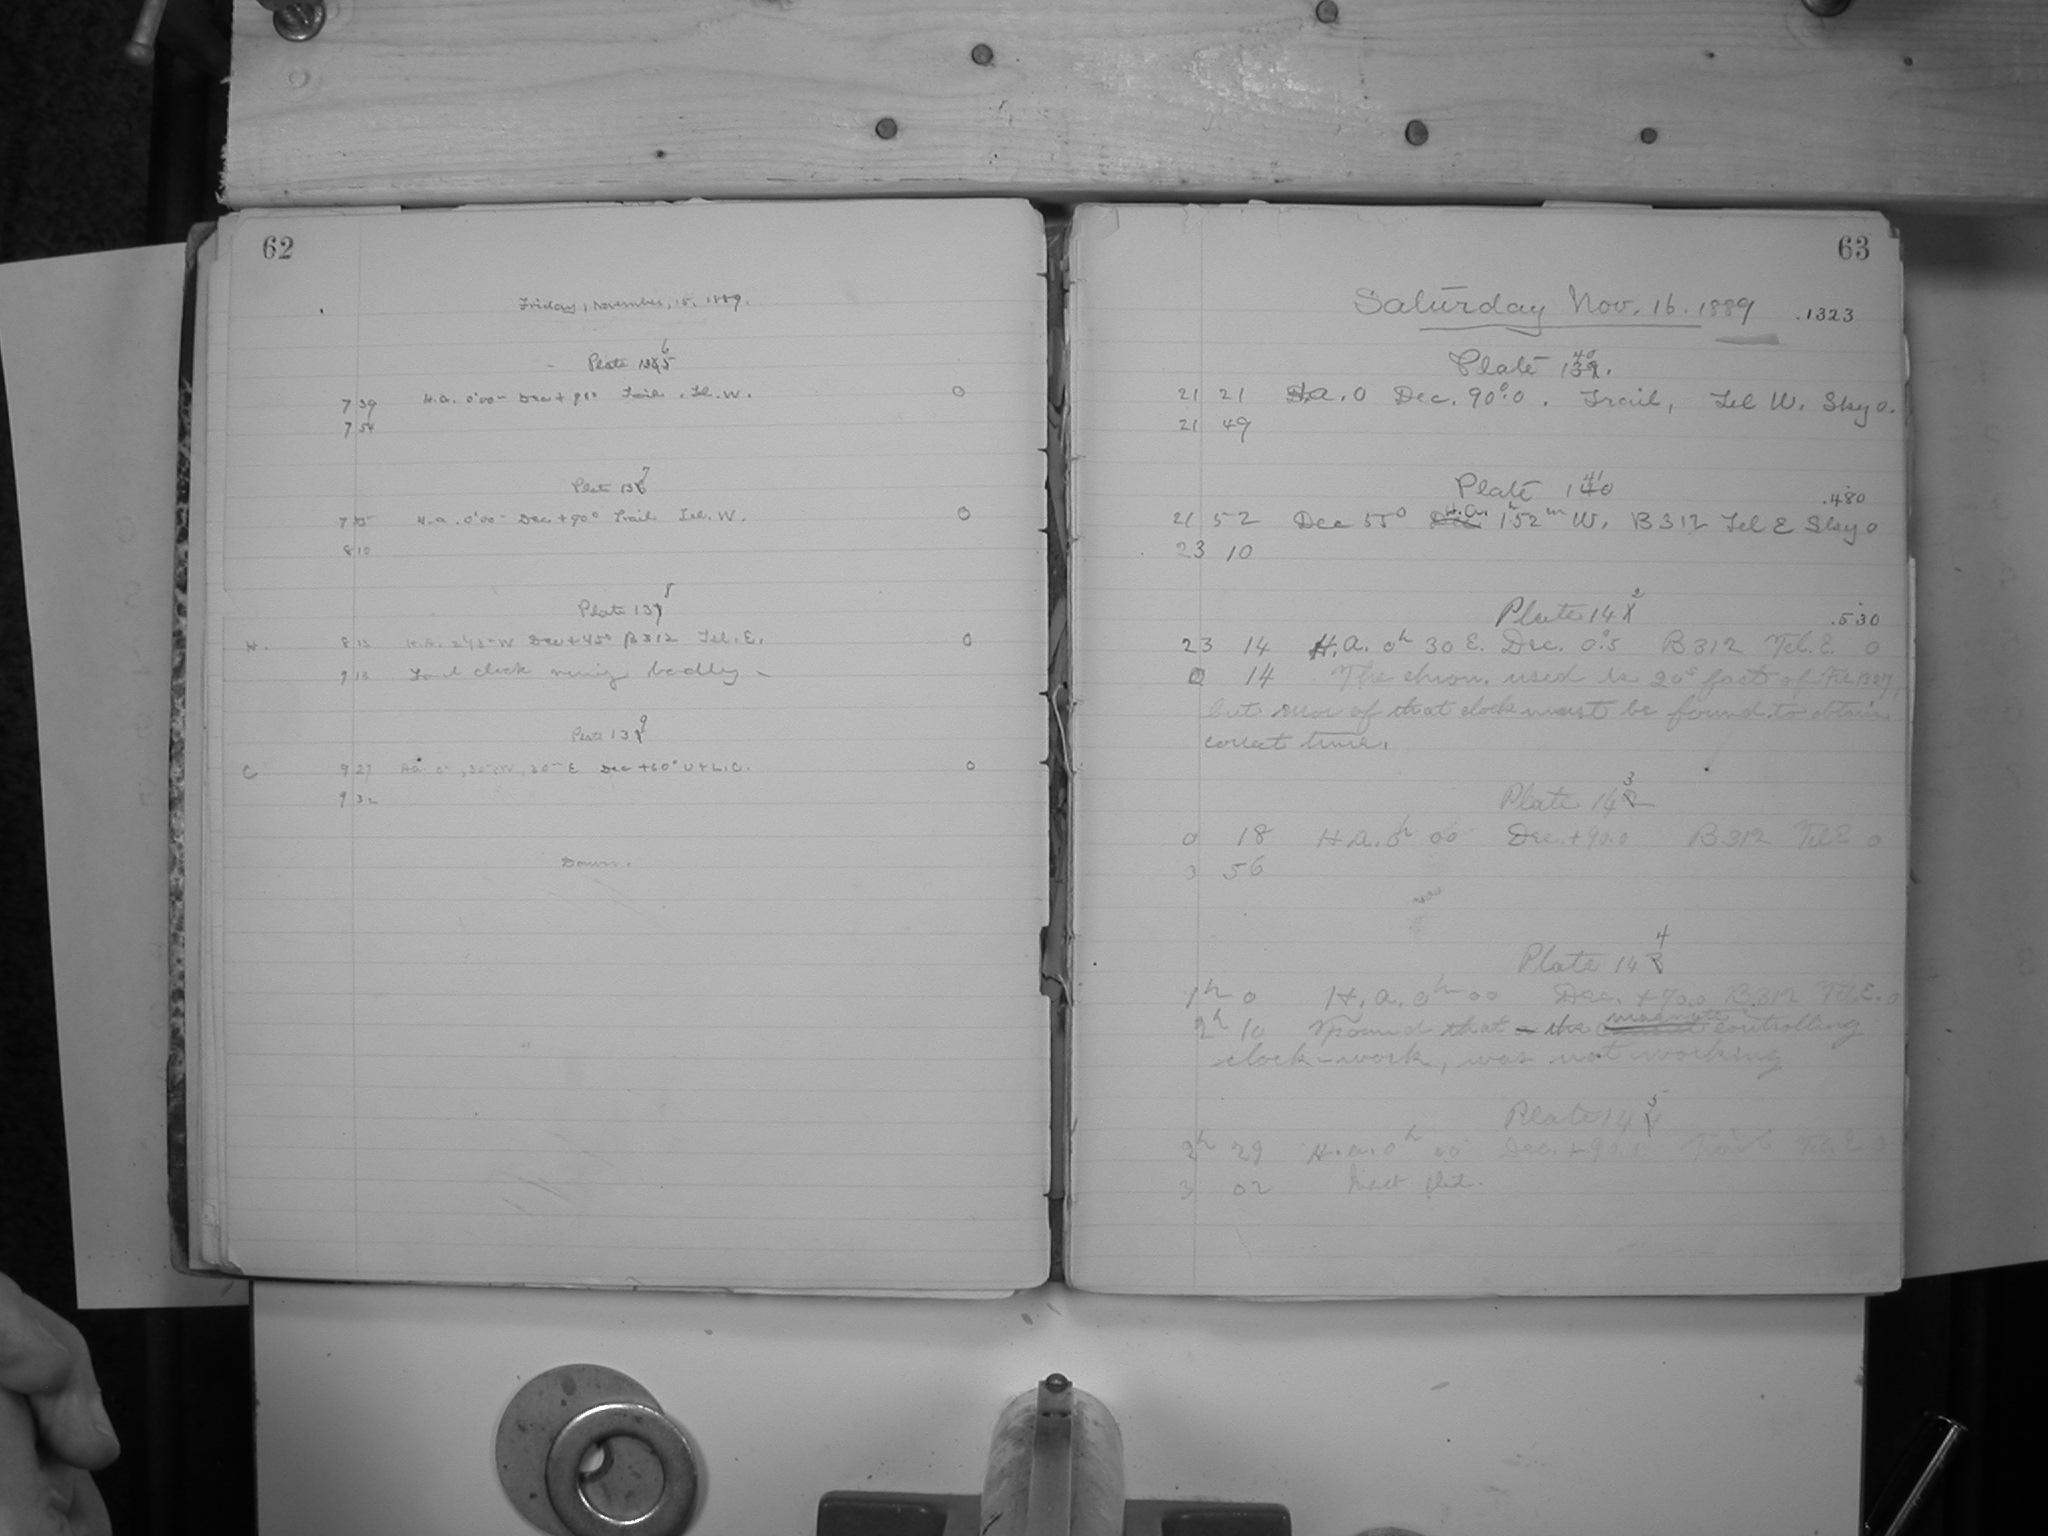 62
Friday, November, 15, 1889.
6
Plate 135
7 39 H.a. 0h00m Dec + 90 Trail. Tel. W. 0
7 54
7
Plate 136
7 55 H.a. 0h00m Dec +90° Trail Tel. W. 0
8 10
8
Plate 137
H. 8 13 Dec +45° B312 Tel. E. 0
9 13 clock badly
9
Plate 138
C 9 27 Dec +60° U + L.C. 0
9 32
Down.
63
Saturday Nov. 16. 1889 .1323
40
Plate 139.
21 21 H.a. 0 Dec. 90°.0. Trail, Tel W. Sky 0.
21 49
41
Plate 140 .480
21 52 Dec 55° H.a. 1h52m W. B312 Tel E Sky 0
23 10
2
Plate 141 .530
23 14 H.A. 0h 30 E. Dec. 0°.5 B312 Tel. E. 0
0 14 The chron. used is 20s fast of
but error of that clock must be found to obtain
correct time.
3
Plate 142
0 18 H.A. 0h 00 Dec. +90.0 B312 Tel. E 0
0 56
4
Plate 143
1h 0 H.a. 0h 00 Dec. +90.0 B.312 Tel. E. 0
magnate
2h 10 Found that the controlling
clock-work, was not working
5
Plate 144
2h 29 H.a. 0h 00 Dec. +90. Trail Tel. E 0
3 02